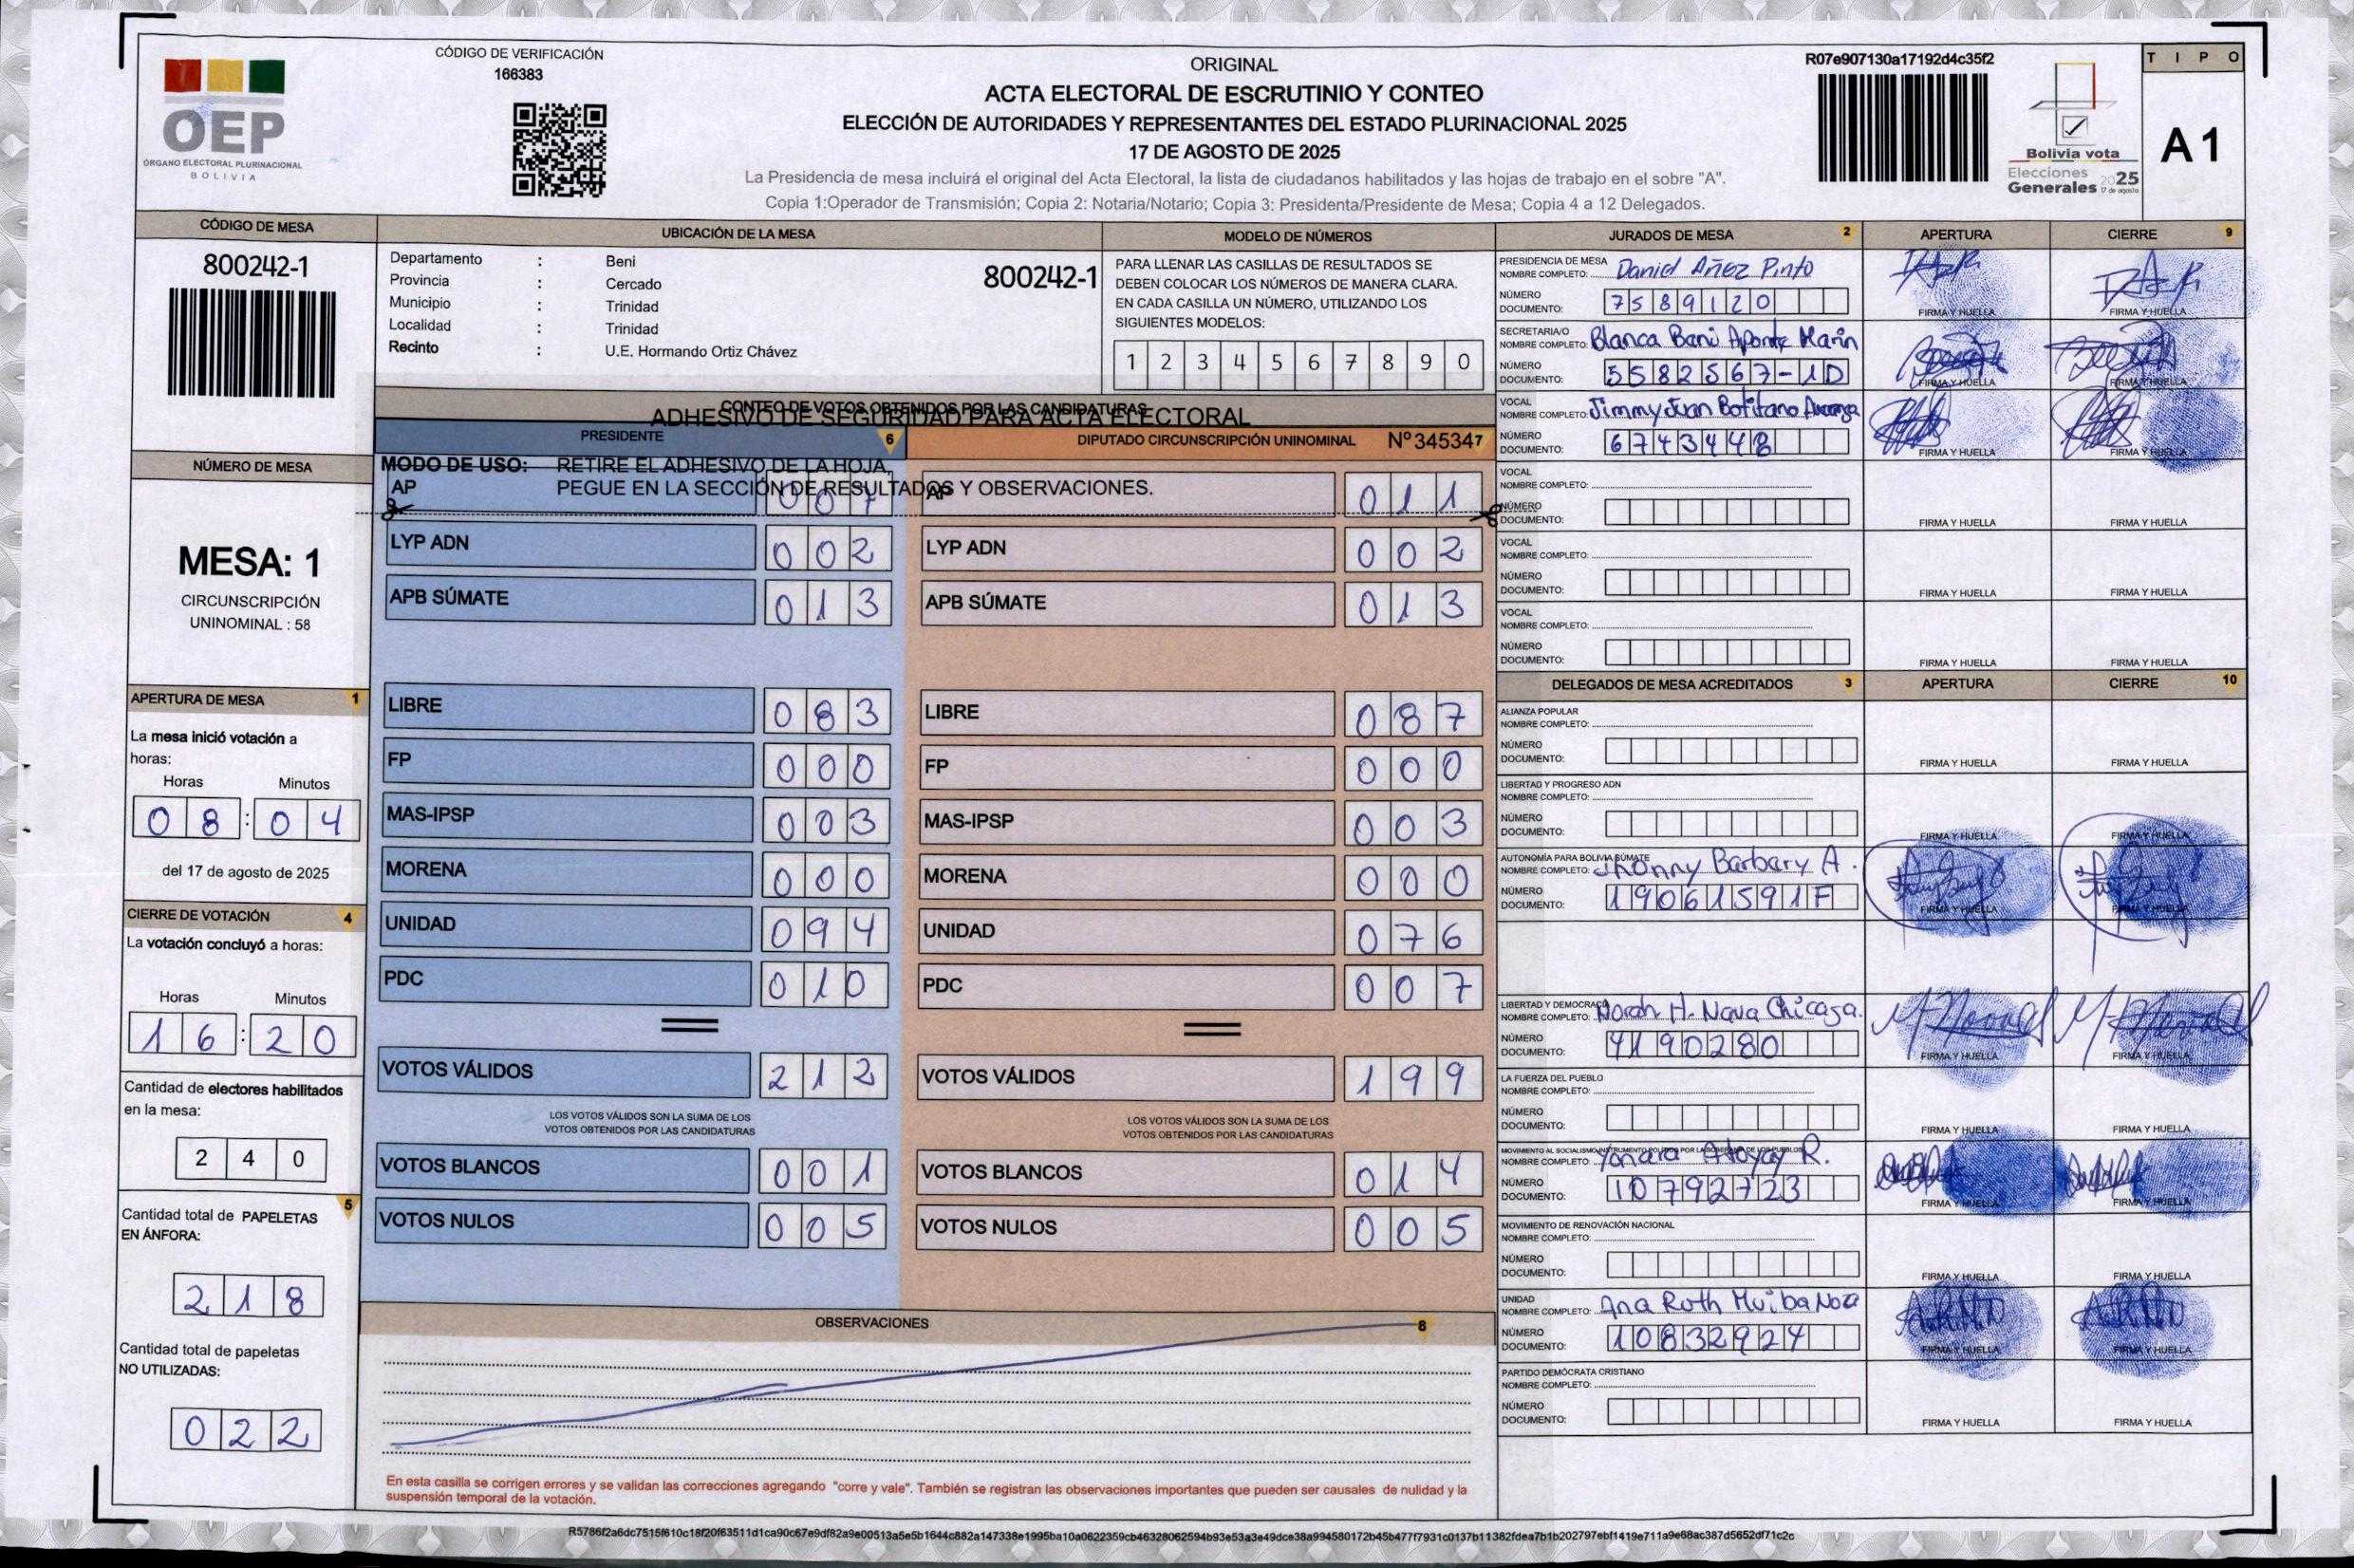 CÓDIGO DE VERIFICACIÓN
166383
OEP
ÓRGANO ELECTORAL PLURINACIONAL
BOLIVIA
ORIGINAL
ACTA ELECTORAL DE ESCRUTINIO Y CONTEO
ELECCIÓN DE AUTORIDADES Y REPRESENTANTES DEL ESTADO PLURINACIONAL 2025
17 DE AGOSTO DE 2025
La Presidencia de mesa incluirá el original del Acta Electoral, la lista de ciudadanos habilitados y las hojas de trabajo en el sobre "A".
Copia 1:Operador de Transmisión; Copia 2: Notaria/Notario; Copia 3: Presidenta/Presidente de Mesa; Copia 4 a 12 Delegados.
R07e907130a17192d4c35f2
Bolivia vota
Elecciones
Generales 2025
17 de agosto
TIPO
A1
CÓDIGO DE MESA
800242-1
UBICACIÓN DE LA MESA
Departamento : Beni
Provincia : Cercado
Municipio : Trinidad
Localidad : Trinidad
Recinto : U.E. Hormando Ortiz Chávez
800242-1
MODELO DE NÚMEROS
PARA LLENAR LAS CASILLAS DE RESULTADOS SE
DEBEN COLOCAR LOS NÚMEROS DE MANERA CLARA.
EN CADA CASILLA UN NÚMERO, UTILIZANDO LOS
SIGUIENTES MODELOS:
1 2 3 4 5 6 7 8 9 0
NÚMERO DE MESA
MESA: 1
CIRCUNSCRIPCIÓN
UNINOMINAL : 58
APERTURA DE MESA 1
La mesa inició votación a
horas:
Horas Minutos
08:04
del 17 de agosto de 2025
CIERRE DE VOTACIÓN 4
La votación concluyó a horas:
Horas Minutos
16:20
Cantidad de electores habilitados
en la mesa:
240
5
Cantidad total de PAPELETAS
EN ÁNFORA:
218
Cantidad total de papeletas
NO UTILIZADAS:
022
CONTEO DE VOTOS OBTENIDOS POR LAS CANDIDATURAS
ADHESIVO DE SEGURIDAD PARA ACTA ELECTORAL
PRESIDENTE 6
DIPUTADO CIRCUNSCRIPCIÓN UNINOMINAL Nº 345347
MODO DE USO: RETIRE EL ADHESIVO DE LA HOJA,
PEGUE EN LA SECCIÓN DE RESULTADOS Y OBSERVACIONES.
AP 007 AP 011
LYP ADN 002 LYP ADN 002
APB SÚMATE 013 APB SÚMATE 013
LIBRE 083 LIBRE 087
FP 000 FP 000
MAS-IPSP 003 MAS-IPSP 003
MORENA 000 MORENA 000
UNIDAD 094 UNIDAD 076
PDC 010 PDC 007
VOTOS VÁLIDOS 212 VOTOS VÁLIDOS 199
LOS VOTOS VÁLIDOS SON LA SUMA DE LOS
VOTOS OBTENIDOS POR LAS CANDIDATURAS
LOS VOTOS VÁLIDOS SON LA SUMA DE LOS
VOTOS OBTENIDOS POR LAS CANDIDATURAS
VOTOS BLANCOS 001 VOTOS BLANCOS 014
VOTOS NULOS 005 VOTOS NULOS 005
OBSERVACIONES 8
En esta casilla se corrigen errores y se validan las correcciones agregando "corre y vale". También se registran las observaciones importantes que pueden ser causales de nulidad y la
suspensión temporal de la votación.
JURADOS DE MESA 2 APERTURA CIERRE 9
PRESIDENCIA DE MESA
NOMBRE COMPLETO: Daniel Añez Pinto
NÚMERO
DOCUMENTO: 7589120
FIRMA Y HUELLA FIRMA Y HUELLA
SECRETARIA/O
NOMBRE COMPLETO: Blanca Bani Aponte Marin
NÚMERO
DOCUMENTO: 5582567-1D
FIRMA Y HUELLA FIRMA Y HUELLA
VOCAL
NOMBRE COMPLETO: Jimmy Juan
NÚMERO
DOCUMENTO: 6743448
FIRMA Y HUELLA FIRMA Y HUELLA
VOCAL
NOMBRE COMPLETO:
NÚMERO
DOCUMENTO:
FIRMA Y HUELLA FIRMA Y HUELLA
VOCAL
NOMBRE COMPLETO:
NÚMERO
DOCUMENTO:
FIRMA Y HUELLA FIRMA Y HUELLA
VOCAL
NOMBRE COMPLETO:
NÚMERO
DOCUMENTO:
FIRMA Y HUELLA FIRMA Y HUELLA
DELEGADOS DE MESA ACREDITADOS 3 APERTURA CIERRE 10
ALIANZA POPULAR
NOMBRE COMPLETO:
NÚMERO
DOCUMENTO:
FIRMA Y HUELLA FIRMA Y HUELLA
LIBERTAD Y PROGRESO ADN
NOMBRE COMPLETO:
NÚMERO
DOCUMENTO:
FIRMA Y HUELLA FIRMA Y HUELLA
AUTONOMÍA PARA BOLIVIA SÚMATE
NOMBRE COMPLETO: Jhonny Barbary A.
NÚMERO
DOCUMENTO: 19061591F
FIRMA Y HUELLA FIRMA Y HUELLA
LIBERTAD Y DEMOCRACIA
NOMBRE COMPLETO: H. Nava Chicaga.
NÚMERO
DOCUMENTO: 4190280
FIRMA Y HUELLA FIRMA Y HUELLA
LA FUERZA DEL PUEBLO
NOMBRE COMPLETO:
NÚMERO
DOCUMENTO:
FIRMA Y HUELLA FIRMA Y HUELLA
MOVIMIENTO AL SOCIALISMO INSTRUMENTO POLÍTICO POR LA SOBERANÍA DE LOS PUEBLOS
NOMBRE COMPLETO: R.
NÚMERO
DOCUMENTO: 10792723
FIRMA Y HUELLA FIRMA Y HUELLA
MOVIMIENTO DE RENOVACIÓN NACIONAL
NOMBRE COMPLETO:
NÚMERO
DOCUMENTO:
FIRMA Y HUELLA FIRMA Y HUELLA
UNIDAD
NOMBRE COMPLETO: Ana Ruth Muiba Noza
NÚMERO
DOCUMENTO: 10832924
FIRMA Y HUELLA FIRMA Y HUELLA
PARTIDO DEMÓCRATA CRISTIANO
NOMBRE COMPLETO:
NÚMERO
DOCUMENTO:
FIRMA Y HUELLA FIRMA Y HUELLA